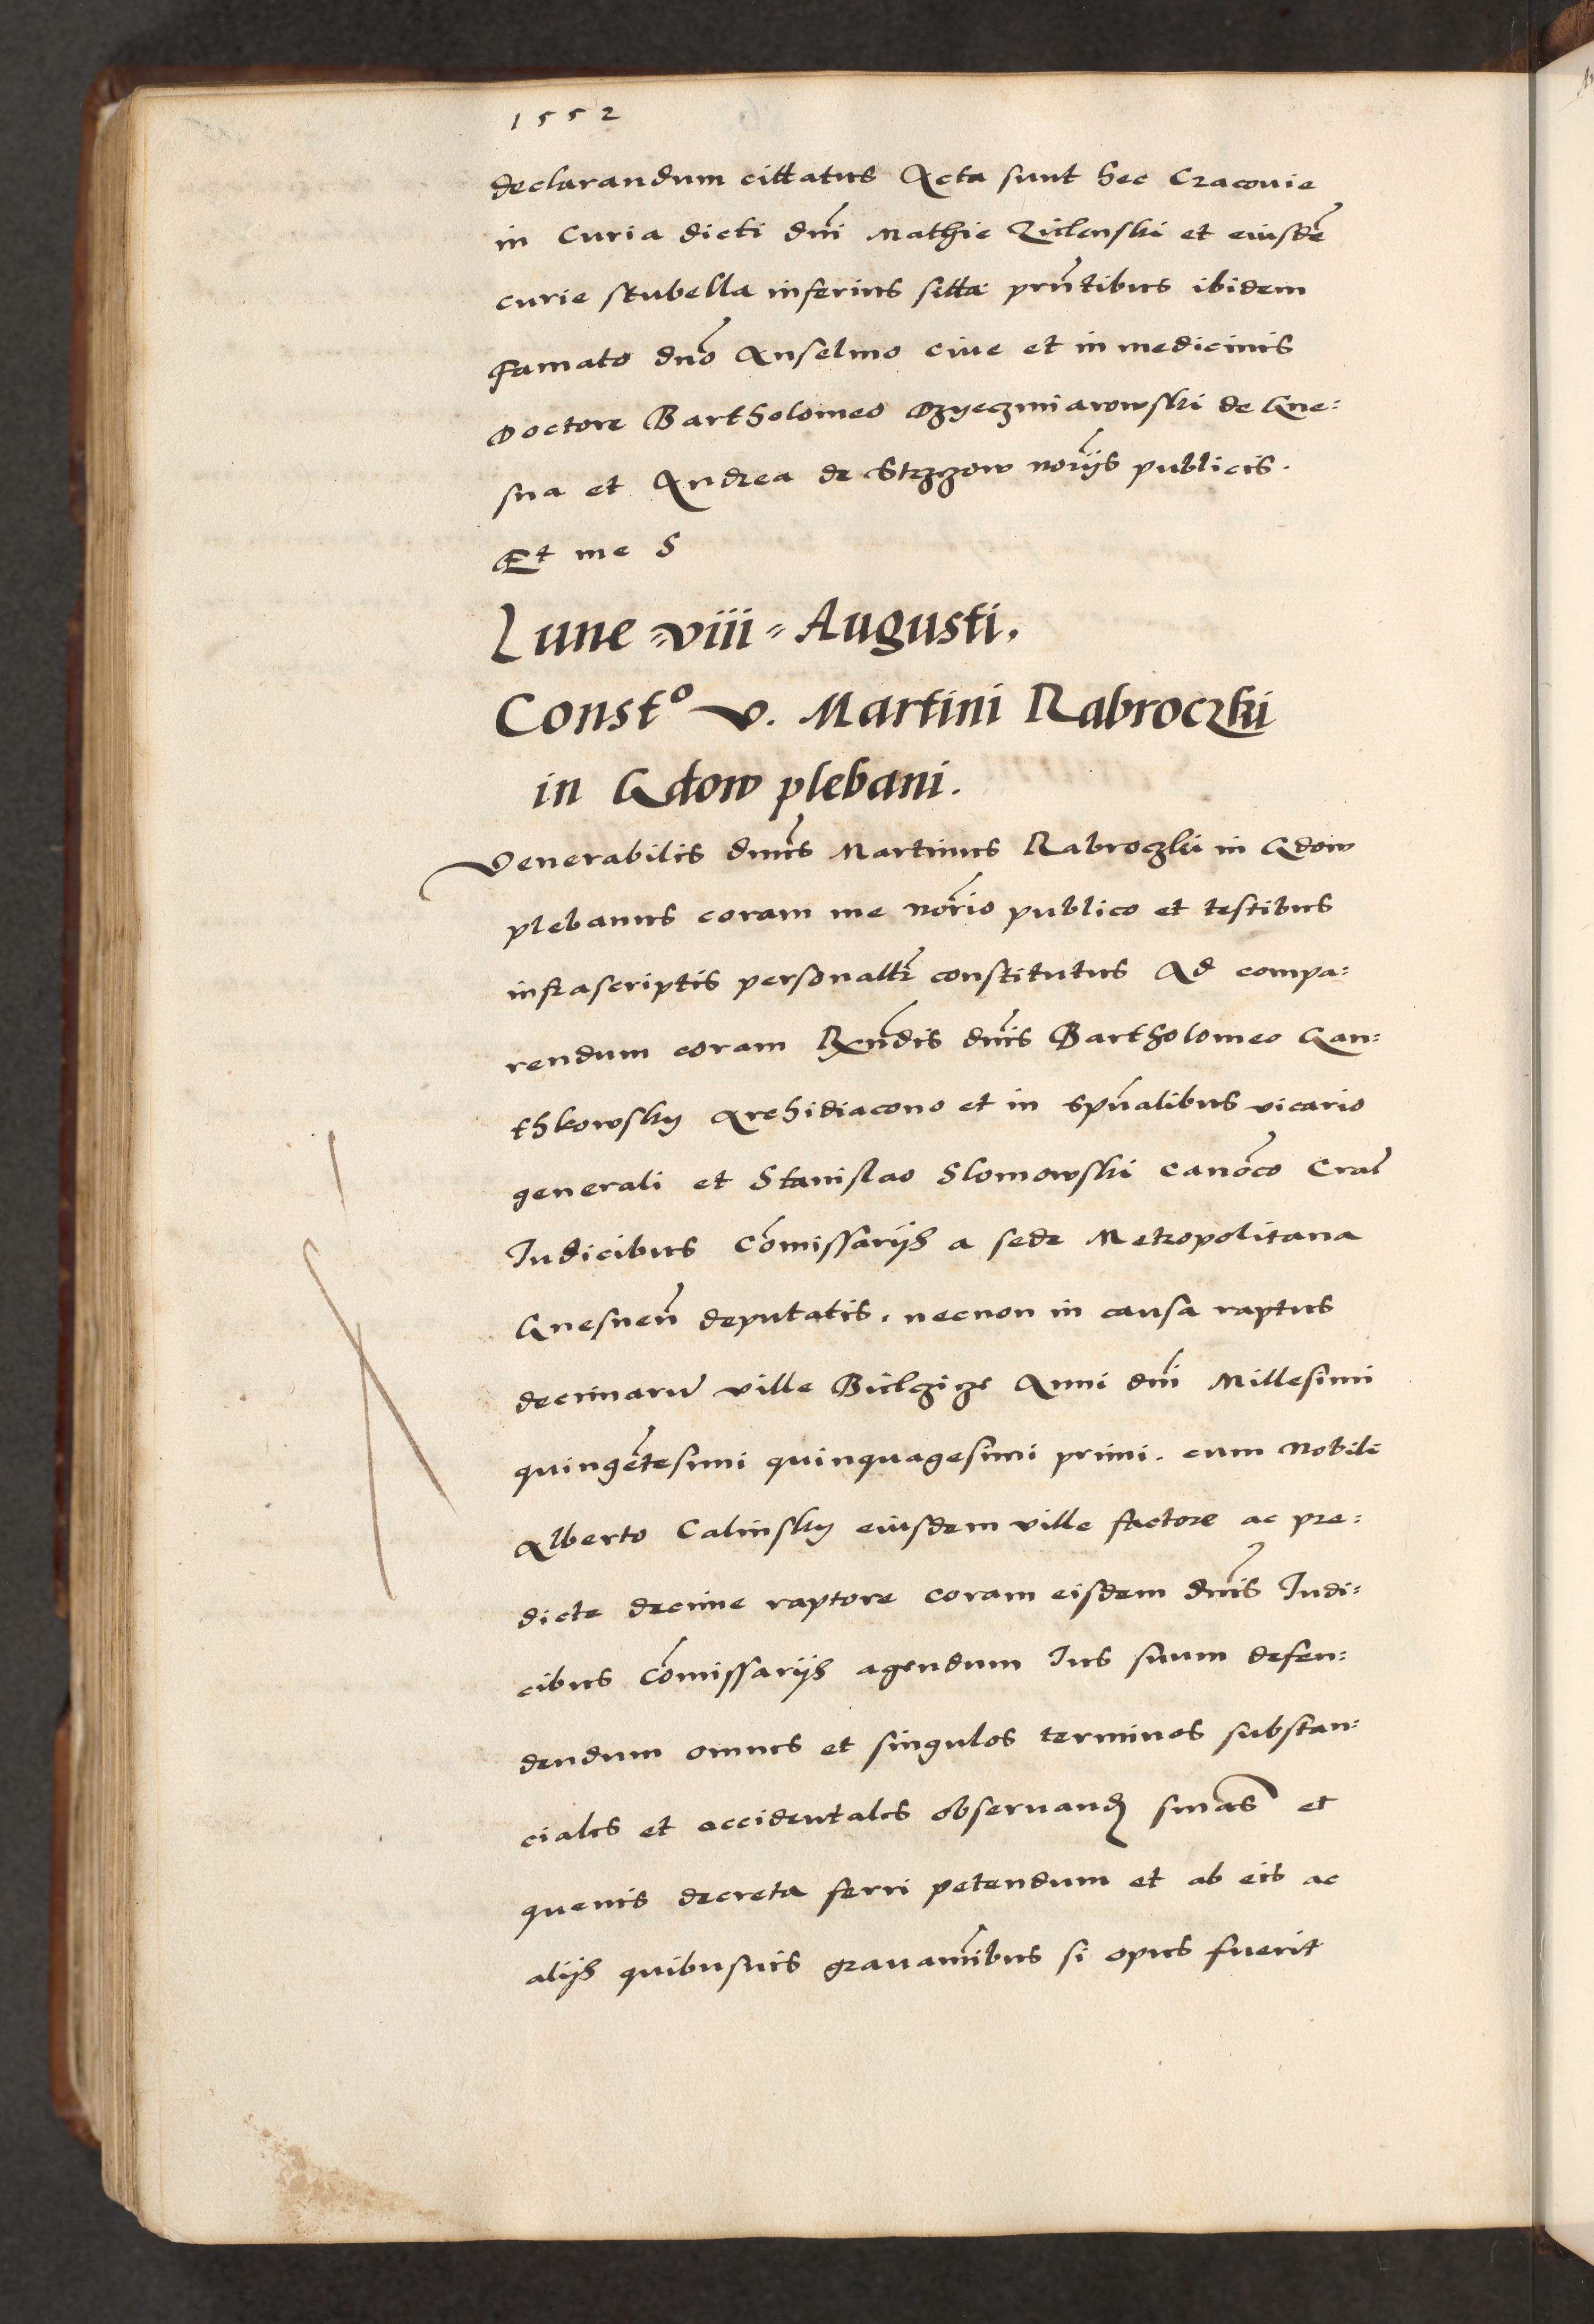 1552
declarandum cittatus Acta sunt hec Cracouie
in Curia dicti dni Mathie Zielenski et eiusde
curie stubella inferius sitta prntibus ibidem
Famato dno Anselmo ciue et in medicinis
Doctore Bartholomeo Dzyeczmiarowski de Gne:
sna et Andrea de norijs publicis.
Et me S
Lune = viii = Augusti.
Constᵒ v. Martini Rabroczki
in Gdow plebani.
Venerabilis dnus Martinus Rabroczki in Gdow
plebanus coram me norio publico et testibus
infrascriptis personaltr constitutus Ad compa:
rendum coram Rndis dnis Bartholomeo Gan:
thkowsky Archidiacono et in spualibus vicario
generali et Stanislao Slomowski canoco Crac
Iudicibus Comissarijs a sede Metropolitana
Gnesnen deputatis. necnon in causa raptus
decimaru ville Bielczicze Anni dni Millesimi
quingetesimi quinquagesimi primi. cum Nobili
Alberto Calinsky eiusdem ville factore ac pre:
dicte decime raptore coram eisdem dnis Iudi:
cibus Comissarijs agendum Ius suum defen:
dendum omnes et singulos terminos substan:
ciales et accidentales obseruand snias et
queuis decreta ferri petendum et ab eis ac
alijs quibusuis grauaminibus si opus fuerit